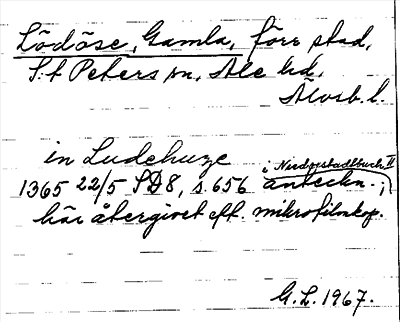 Lödöse, Gamla, förr stad,
S:t Peters sn, Ale hd,
Älvsb. l.
in Ludehuze
1365 22/5 SD 8, s. 656 i Niederstadtbuch II anteckn.;
här återgivet eft. mikrofilmkop.
G.L. 1967.